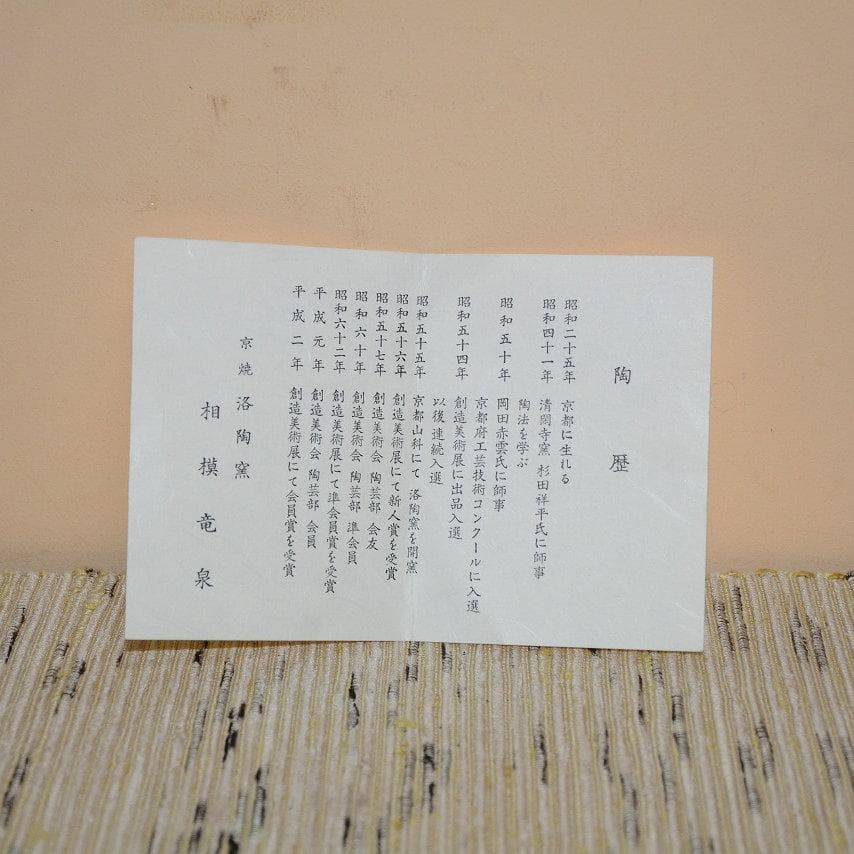 陶歴
昭和二十五年 京都に生れる
昭和四十一年 清閑寺窯 杉田祥平氏に師事
陶法を学ぶ
昭和五十年 岡田赤雲氏に師事
京都府工芸技術コンクールに入選
昭和五十四年 創造美術展に出品入選
以後連続入選
昭和五十五年 京都山科にて 洛陶窯を開窯
昭和五十六年 創造美術展にて新人賞を受賞
昭和五十七年 創造美術会 陶芸部 会友
昭和六十年 創造美術会 陶芸部 準会員
昭和六十二年 創造美術展にて準会員賞を受賞
平成元年 創造美術会 陶芸部 会員
平成二年 創造美術展にて会員賞を受賞
京焼 洛陶窯
相模竜泉